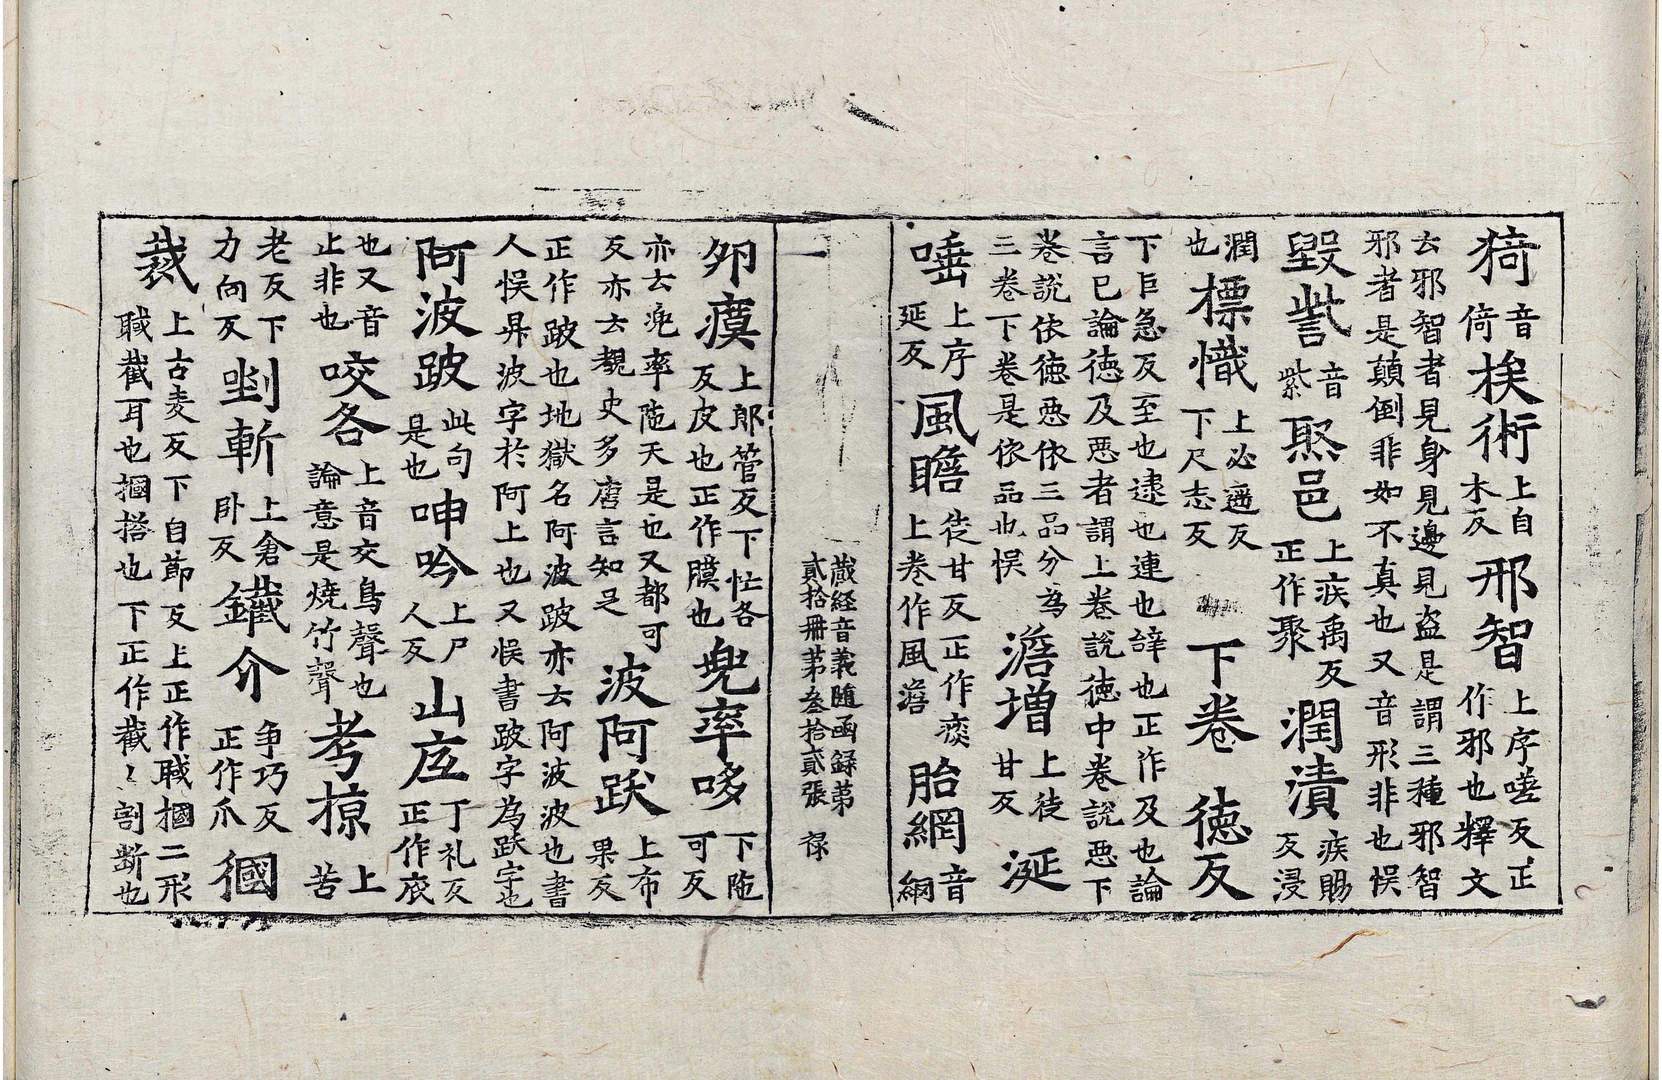 猗音倚挨術上自木反邪智上序嗟反正作邪也釋文
云邪智者見身見邊見盗是謂三種邪智邪者是顛倒非如不真也又音形非也悮
毀訾音紫㷅邑上疾禹反正作聚潤漬疾賜反浸
潤也標幟上必遥反下尺志反 下卷 德反
下巨急反至也逮也連也辝也正作及也論言已論德及惡者謂上卷說德中卷說惡下
卷說依德惡依三品分為三卷下卷是依品也悮澹增上徒甘反涎
唾上序延反風瞻徒甘反正作痰上卷作風澹胎網音網
一 藏経音義随函録第貳拾册第叁拾貳張 禄
夘瘼上郎管反下忙各反皮也正作膜也兜率哆下陁可反
亦云渀率陁天是也又都可反亦云覩史多唐言知足波阿跌上布果反
正作跛也地獄名阿波跛亦云阿波波也書人悮昇波字於阿上也又悮書跛字為跌字也
阿波跛此句是也呻吟上尸人反山㡳丁礼反正作底
也又音止非也咬各上音交鳥聲也論意是燒竹聲考掠上苦
老反下力向反剉斬上倉卧反鐵介争巧反正作爪䆐
裁上古麦反下自節反上正作聝摑二形聝截耳也摑搭也下正作截〻割斷也